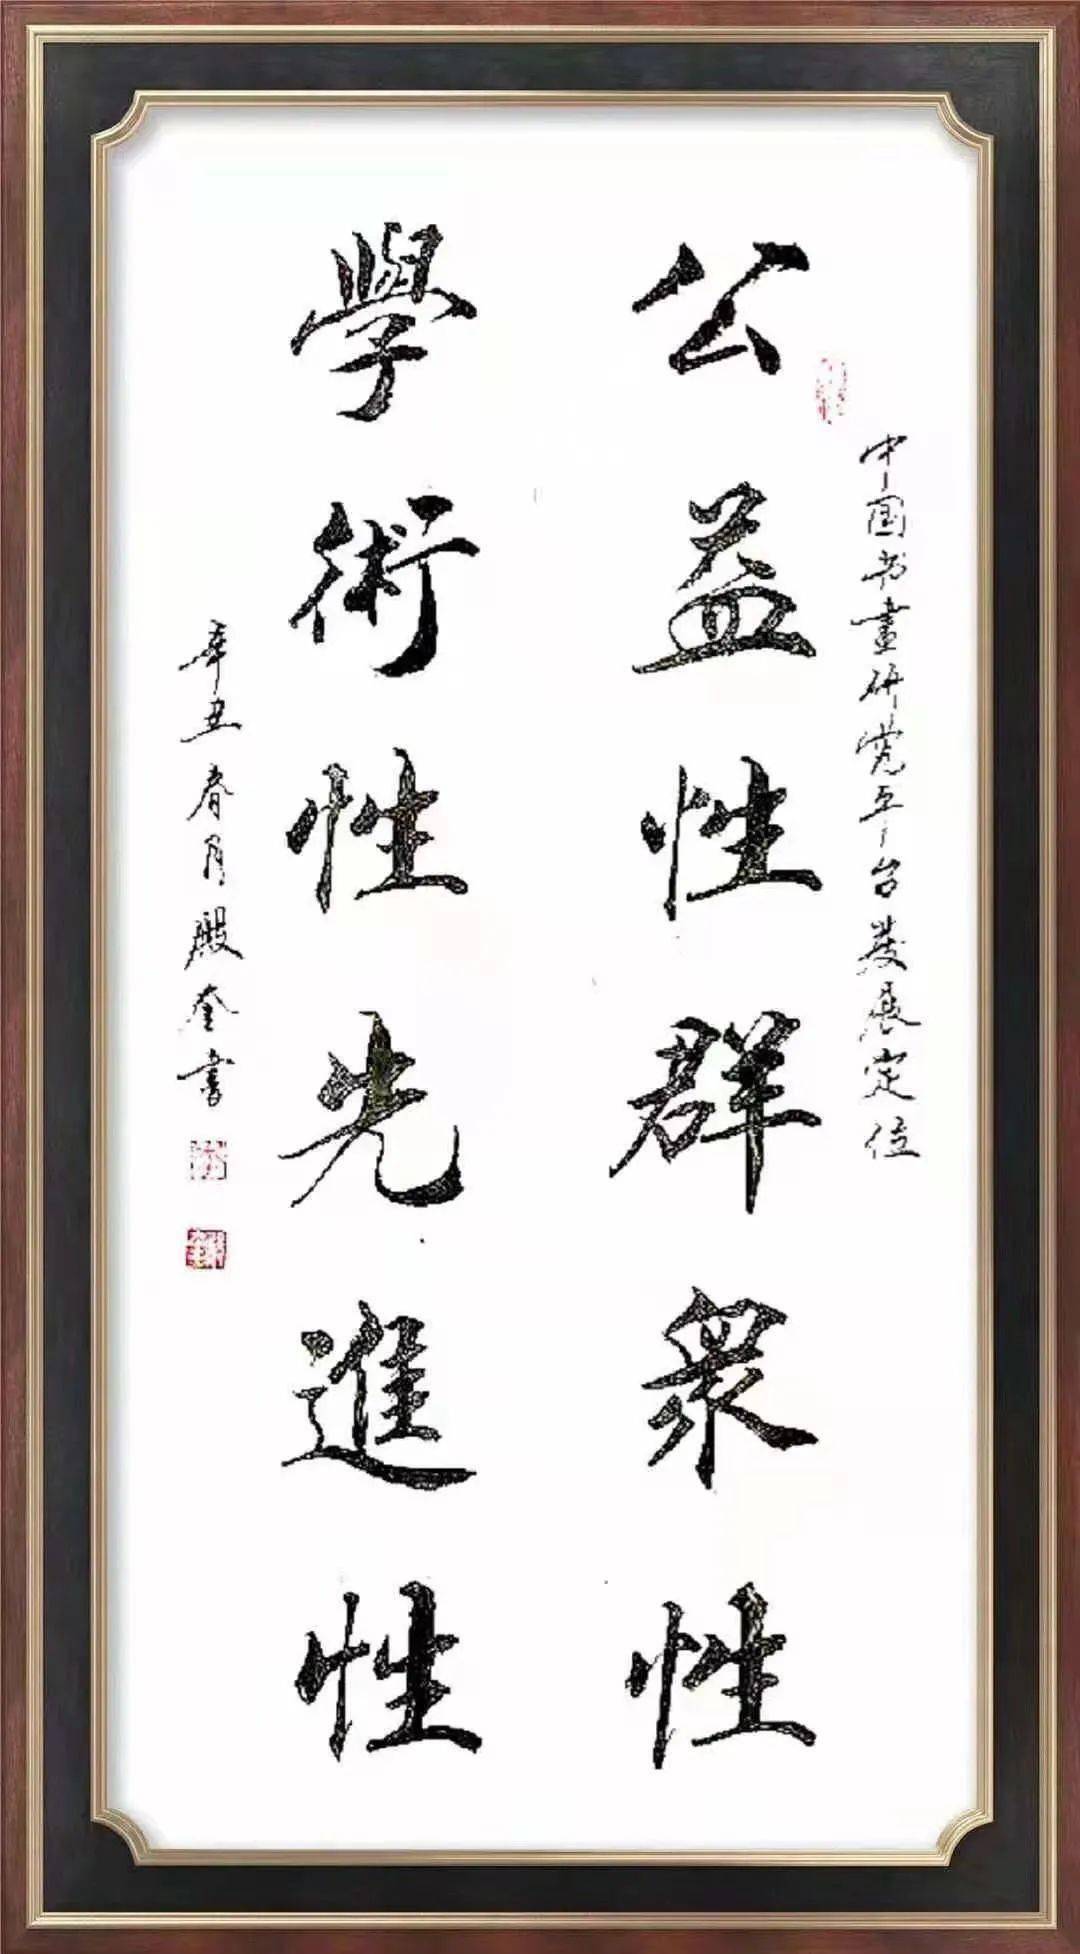 中国书畫研究平台發展定位
公益性群衆性
學術性先進性
辛丑春月殿奎書